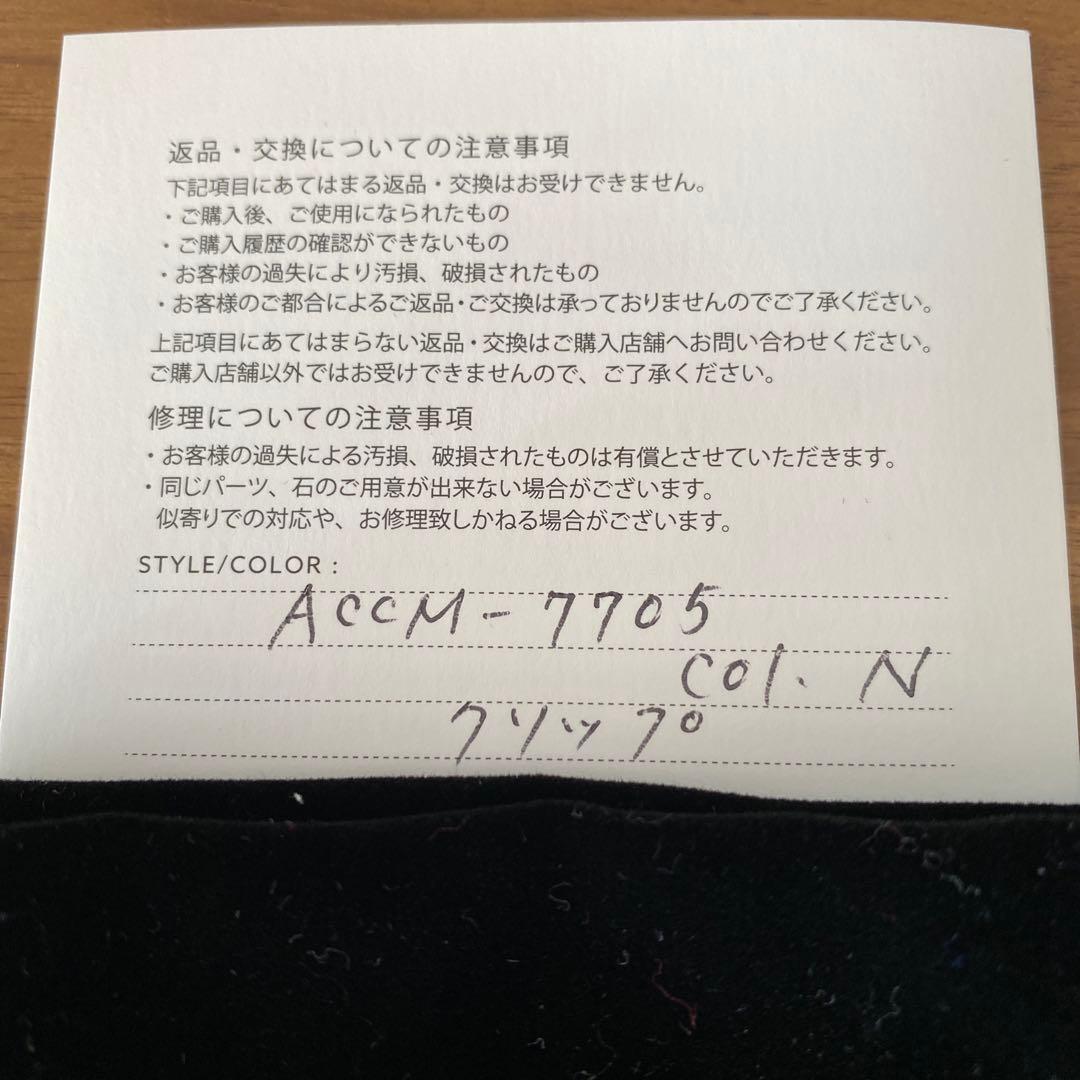 返品・交換についての注意事項
下記項目にあてはまる返品・交換はお受けできません。
・ご購入後、ご使用になられたもの
・ご購入履歴の確認ができないもの
・お客様の過失により汚損、破損されたもの
・お客様のご都合によるご返品・ご交換は承っておりませんのでご了承ください。
上記項目にあてはまらない返品・交換はご購入店舗へお問い合わせください。
ご購入店舗以外ではお受けできませんので、ご了承ください。
修理についての注意事項
・お客様の過失による汚損、破損されたものは有償とさせていただきます。
・同じパーツ、石のご用意が出来ない場合がございます。
似寄りでの対応や、お修理致しかねる場合がございます。
STYLE/COLOR :
ACCM-7705
col. N
クリップ